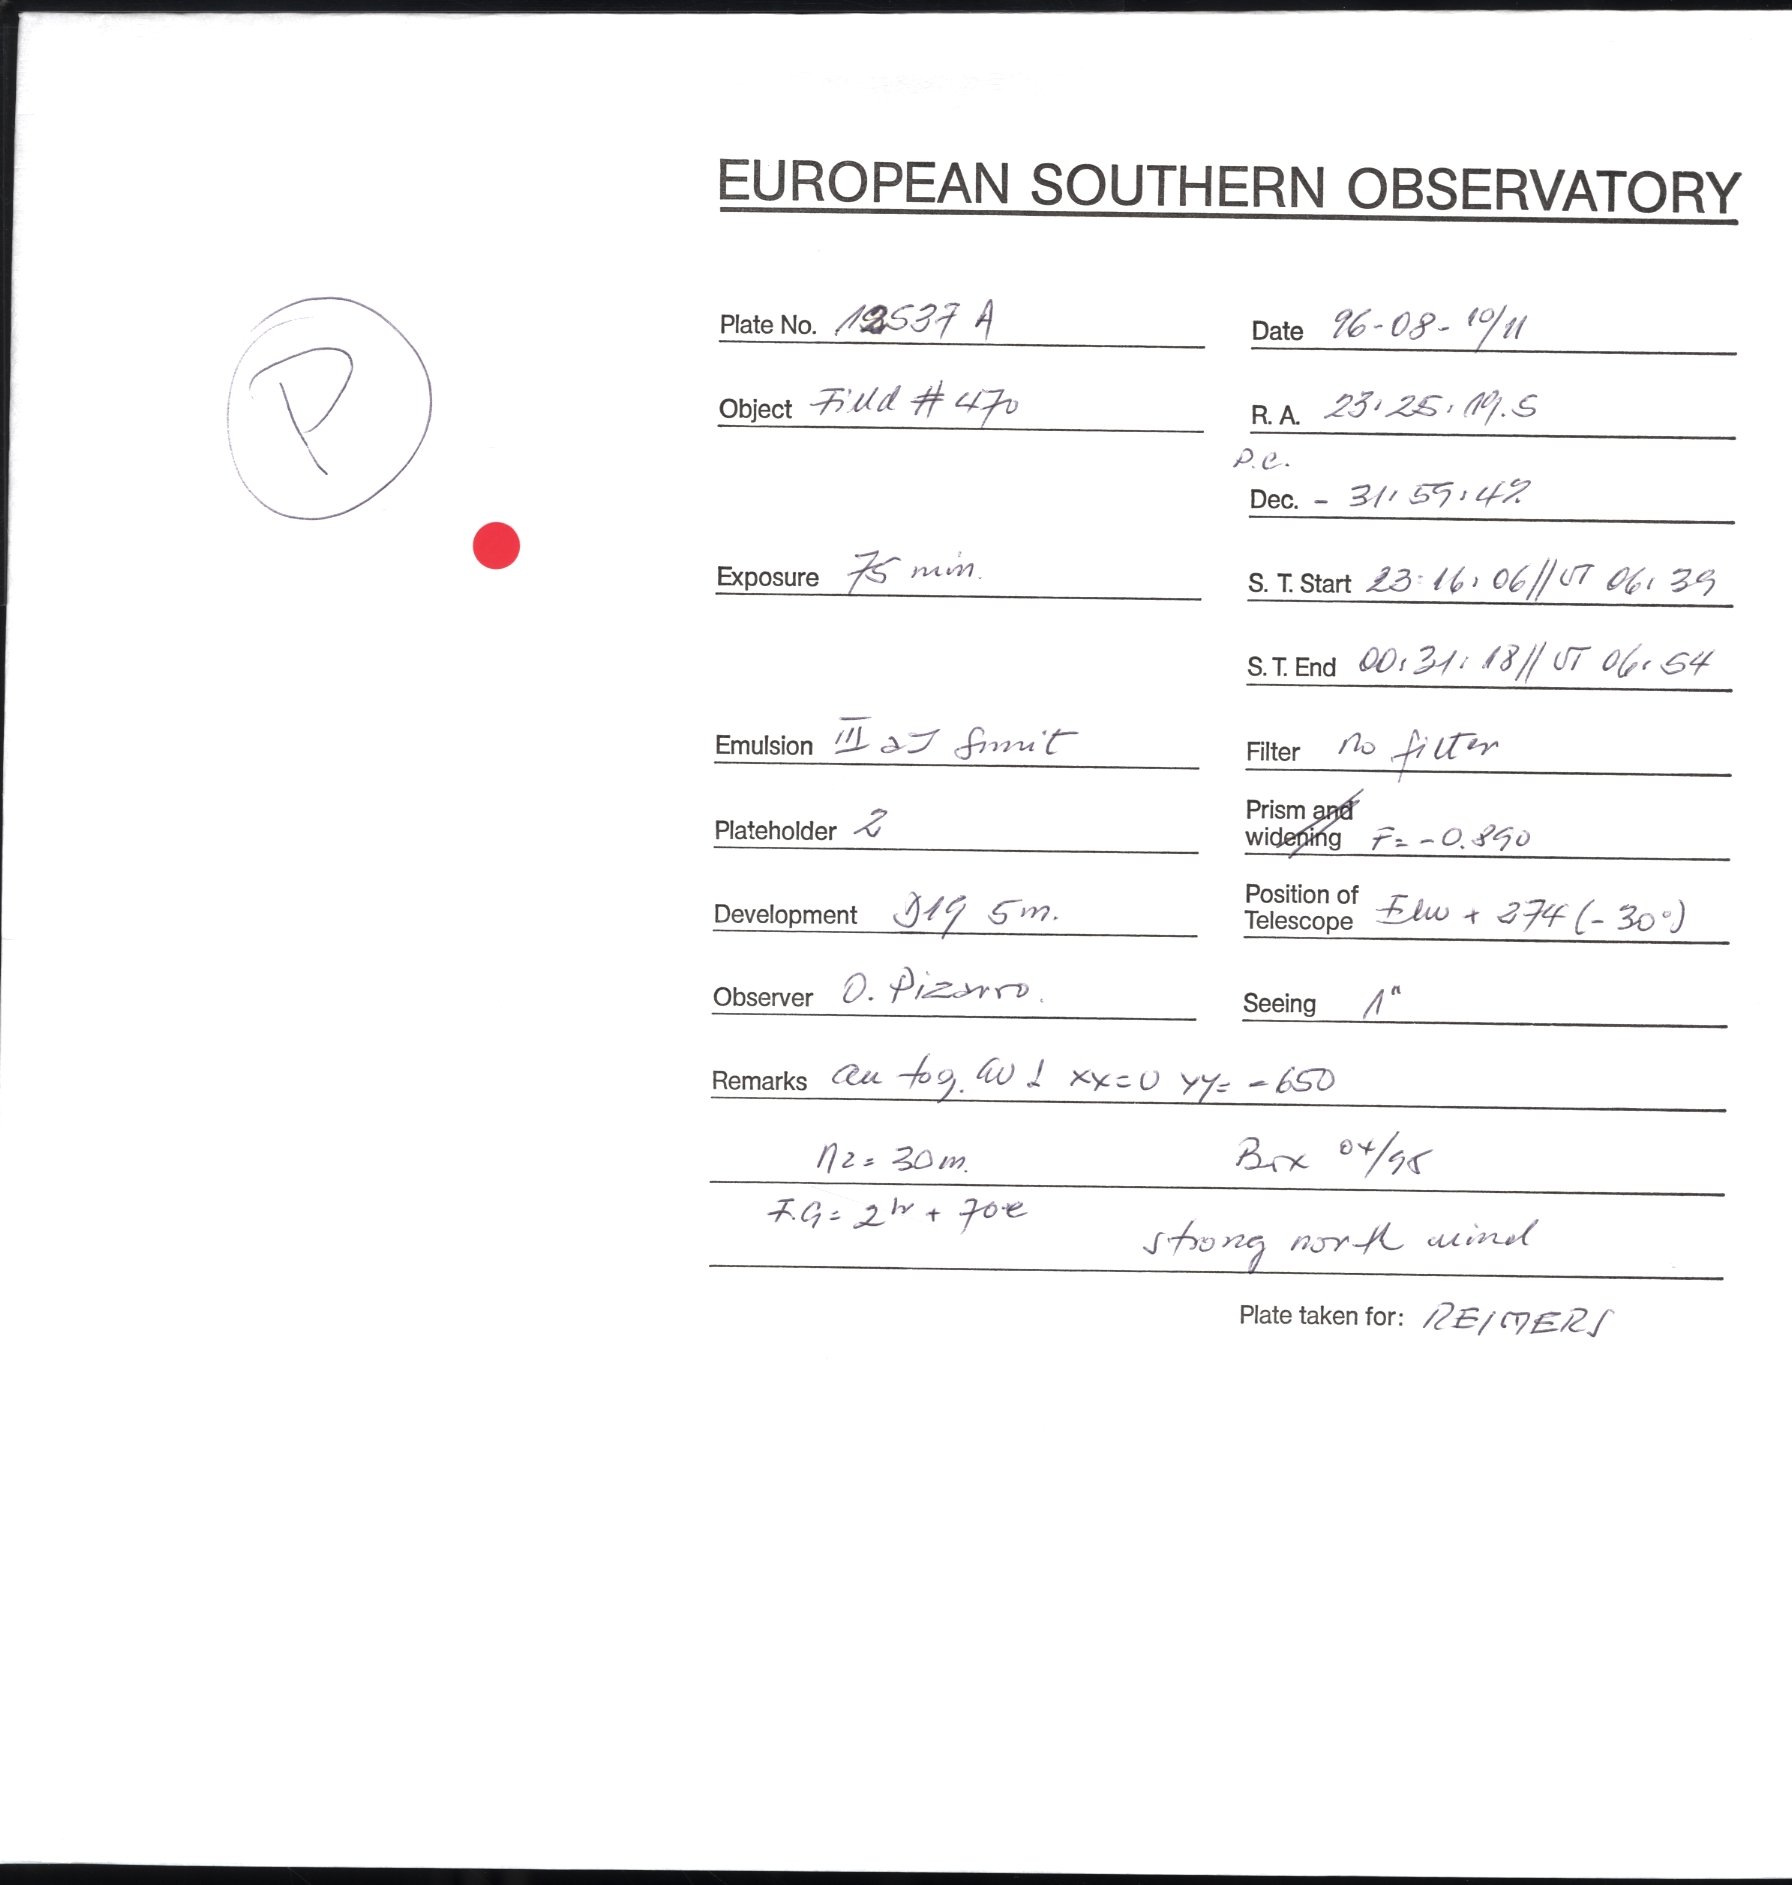 EUROPEAN SOUTHERN OBSERVATORY
P
Plate No. 12537 A Date 96-08-10/11
Object Field # 470 R. A. 23:25:19.5
P.C.
Dec. - 31:59:42
Exposure 75 min. S. T. Start 23:16:06//UT 06:39
S. T. End 00:31:18//UT 06:54
Emulsion III aJ Filter no filter
Plateholder 2 Prism and widening F= -0.890
Development D19 5m. Position of Telescope + 274 (-30°)
Observer O. Pizarro. Seeing 1"
Remarks xx=0 yy= -650
N2= 30m. Box 04/95
F.G= 2hr + 70e
strong north wind
Plate taken for: REIMERS